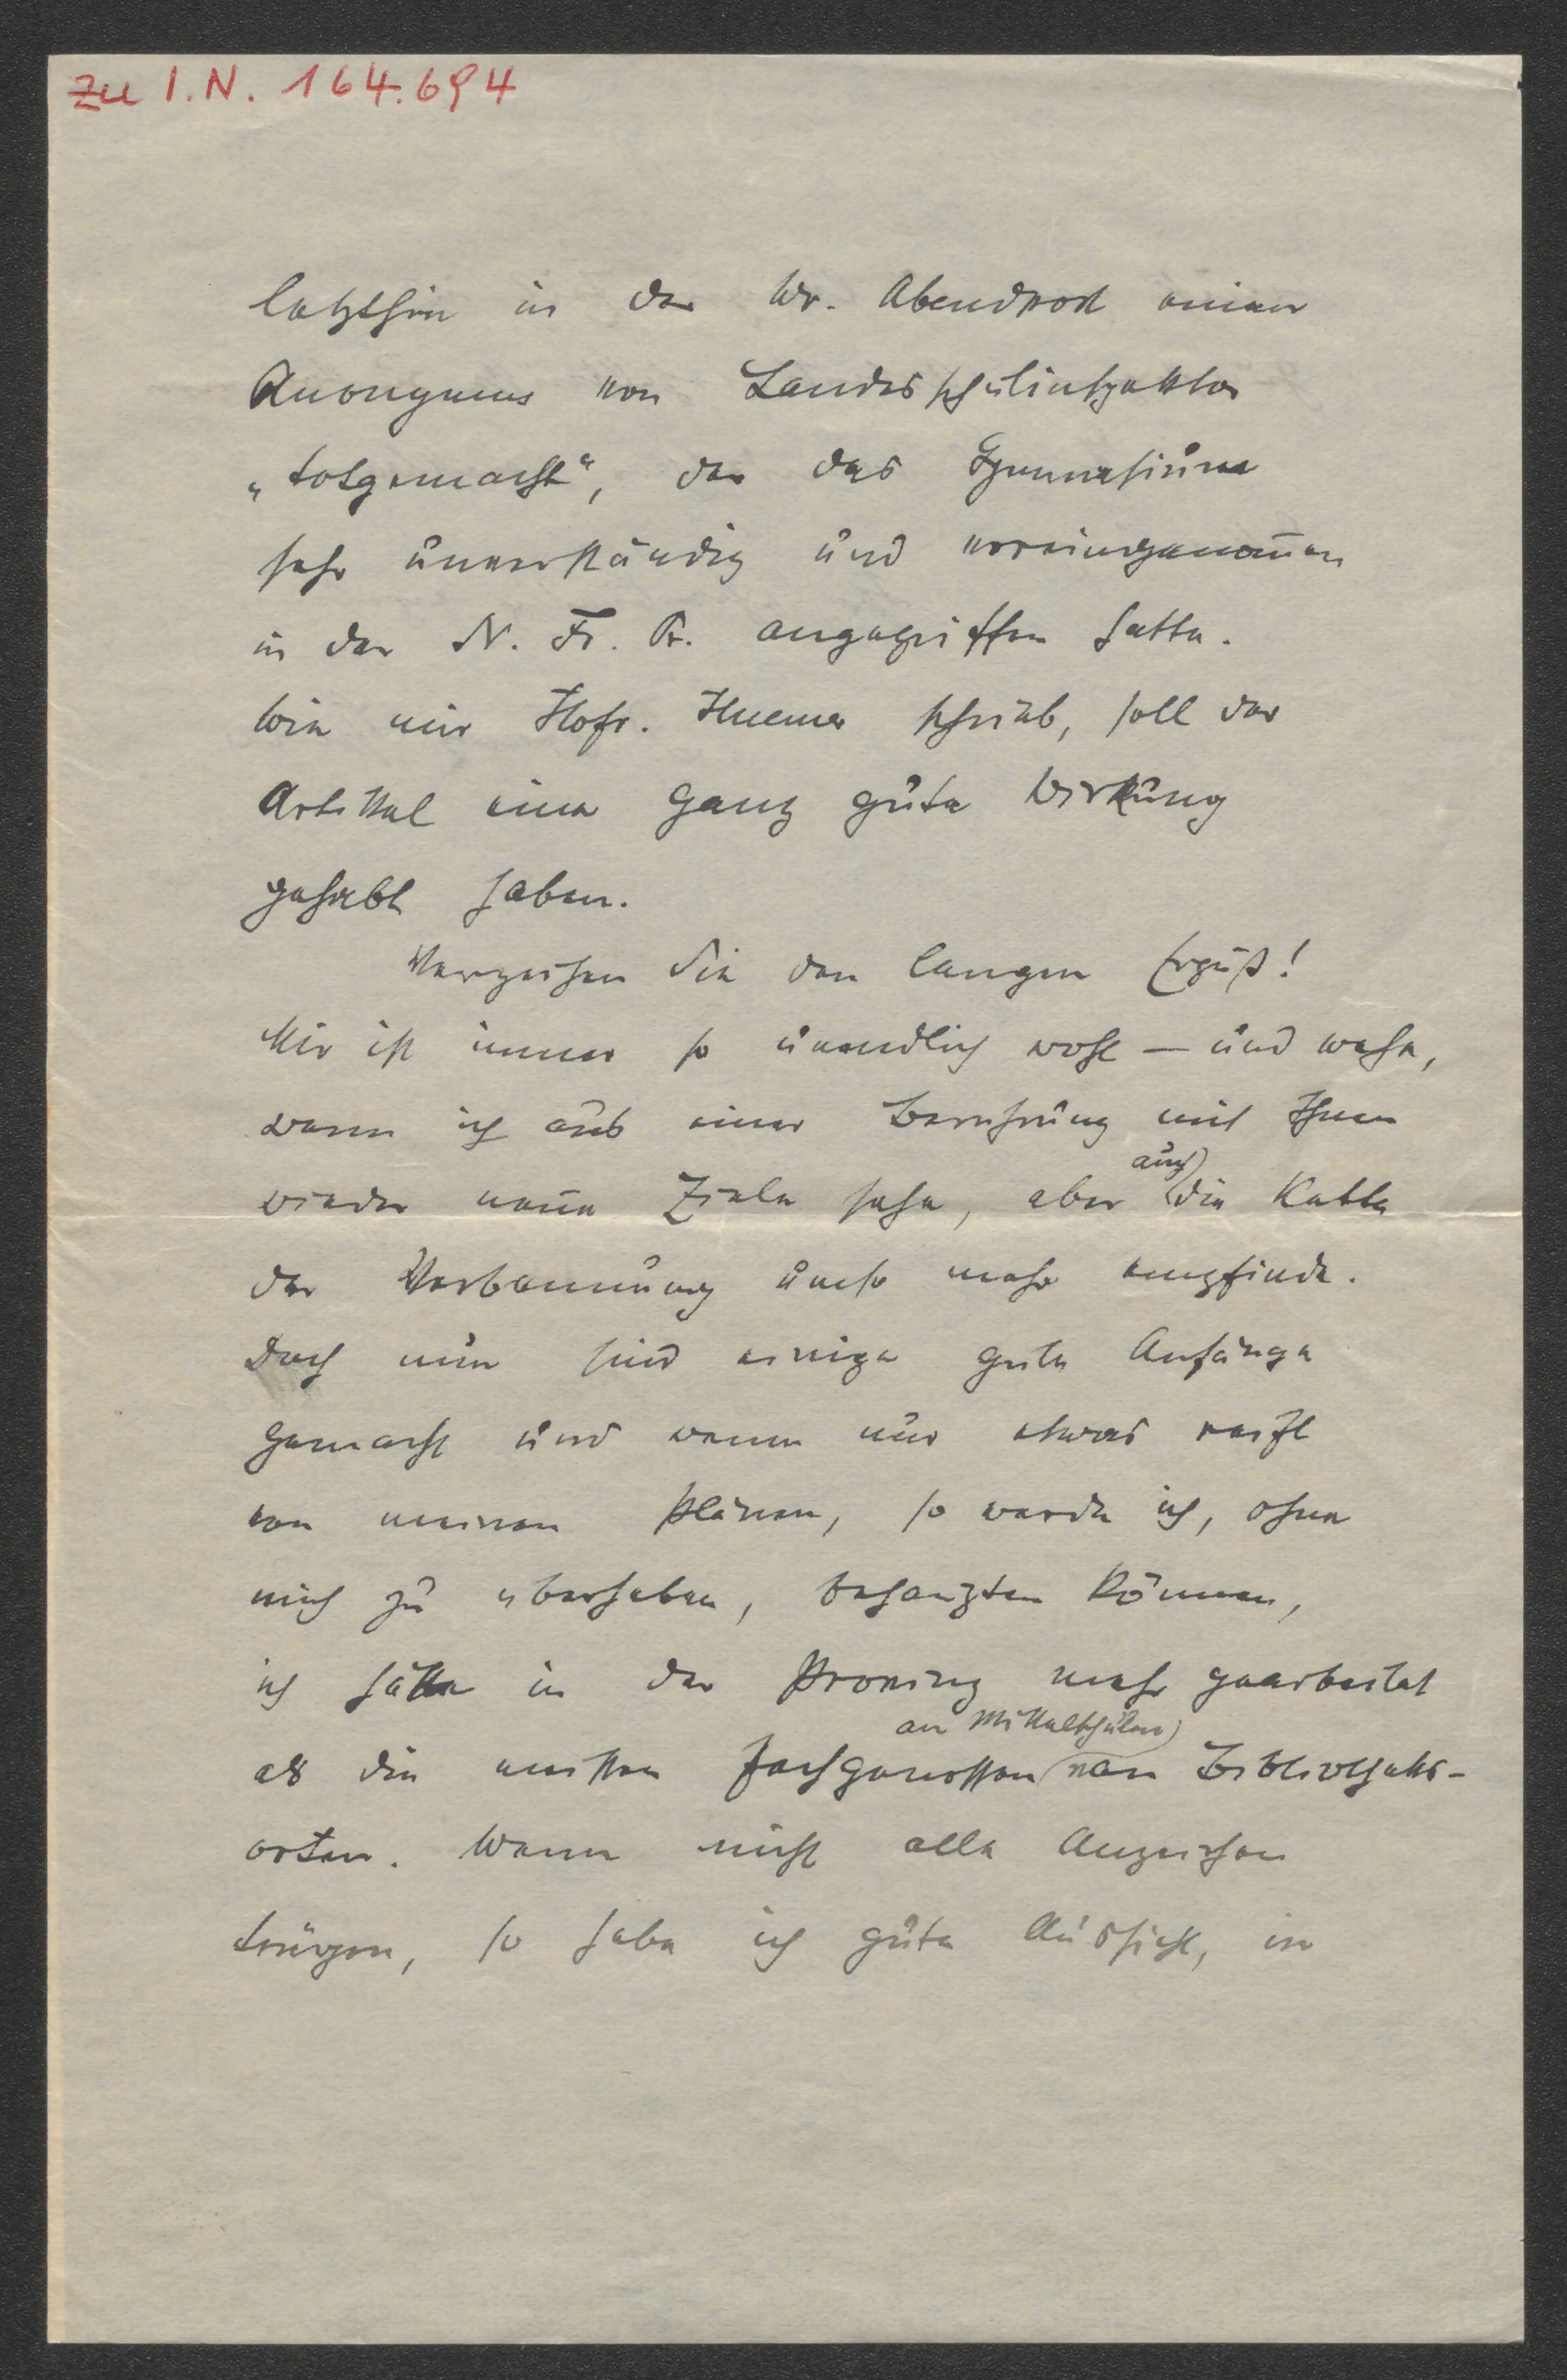 Zu I.N. 164.694
letzthin in der Wr. Abendpost einen
Anonymus von Landesschulinspektor
„totgemacht“, der das Gymnasium
sehr unverständig und voreingenom̄en
in der N. Fr. Pr. angegriffen hatte.
Wie mir Hofr. Huemer schrieb, soll der
Artikel eine ganz gute Wirkung
gehabt haben.
Verzeihen Sie den langen Erguß!
Mir ist immer so unendlich wohl – und wehe,
wenn ich aus einer Berührung mit Ihnen
auch
wieder neue Ziele sehe, aber die Kette
der Verbannung umso mehr empfinde.
Doch nun sind einige gute Anfänge
gemacht und wenn nur etwas reift
von meinen Plänen, so werde ich, ohne
mich zu überheben, behaupten können,
ich hätte in der Provinz mehr gearbeitet
an Mittelschulen
als die meisten Fachgenossen von Bibliotheks-
orten. Wenn nicht alle Anzeichen
trügen, so habe ich gute Aussicht, in